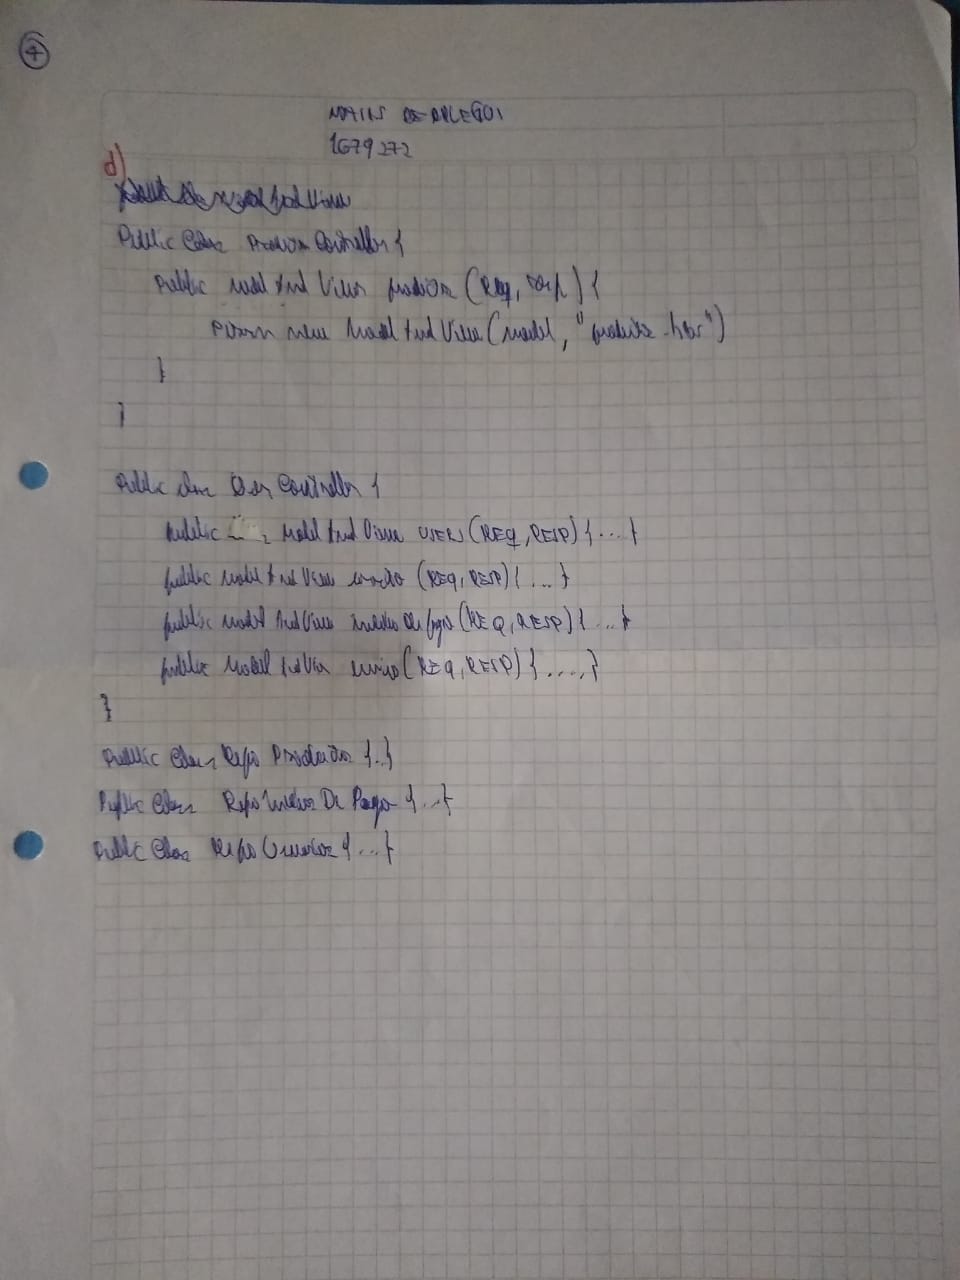 4
1679272
d)
Public Class Productos Controller {
Public Model And View productos (Req, resp) {
return new Model And View (model, "productos.hbs")
}
}
Public class User Controller {
public Model And View USER (REQ, RESP) { ... }
public Model And View (REQ, RESP) { ... }
public Model And View medios de pago (REQ, RESP) { ... }
public Model And View envio (REQ, RESP) { .... }
}
Public Class Repo Productos {..}
Public Class Repo Medios De Pago { ... }
Public Class Repo Usuarios { ... }